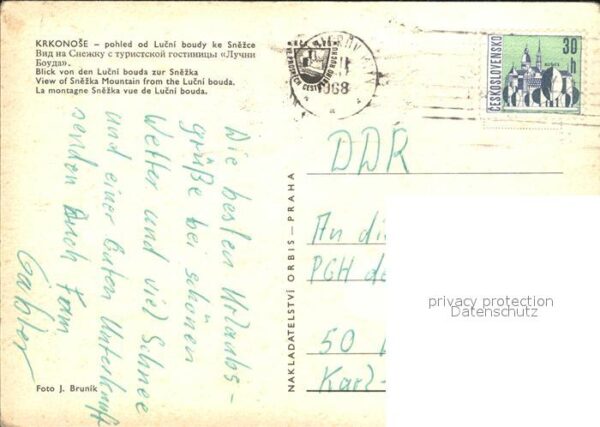 KRKONOŠE – pohled od Luční boudy ke Sněžce
Вид на Снежку с туристской гостиницы «Лучни
Боуда».
Blick von den Luční bouda zur Sněžka
View of Sněžka Mountain from the Luční bouda.
La montagne Sněžka vue de Luční bouda.
1968
ČESKOSLOVENSKO
30 h
Die besten Urlaubs-
grüße bei schönen
Wetter und viel Schnee
und einer Guten Unterkunft
senden Euch Fam
NAKLADATELSTVÍ ORBIS – PRAHA
DDR
An die
PGH de
50
Karl-
privacy protection
Datenschutz
Foto J. Bruník